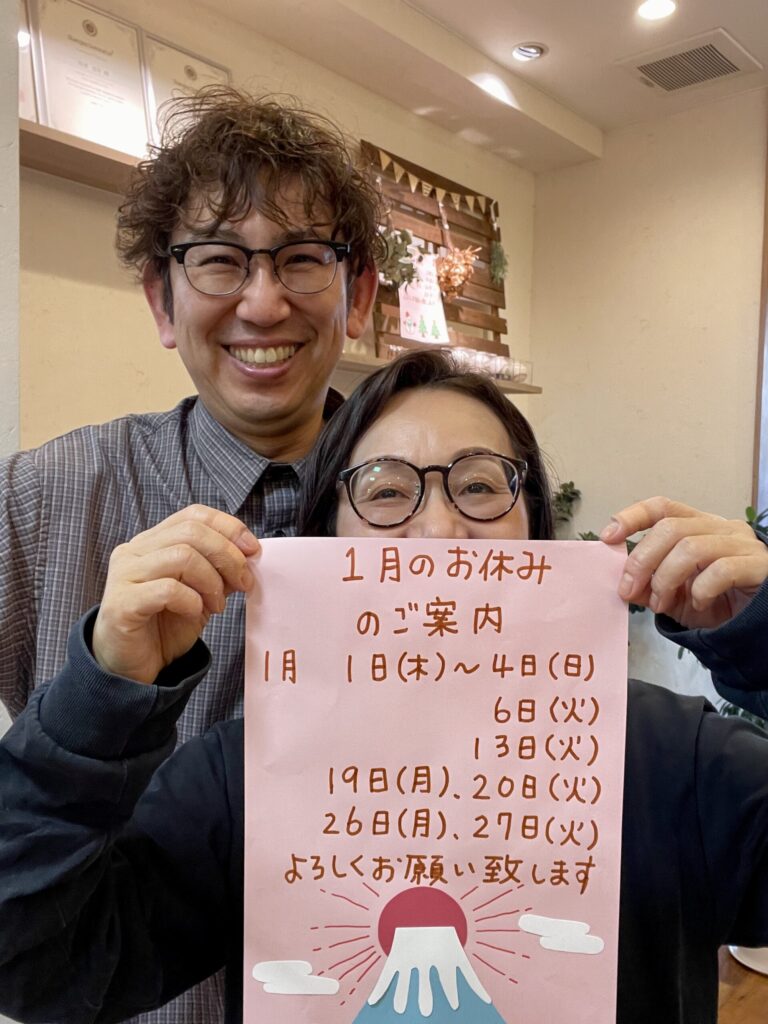 1月のお休み
のご案内
1月 1日(木)～4日(日)
6日(火)
13日(火)
19日(月)、20日(火)
26日(月)、27日(火)
よろしくお願い致します